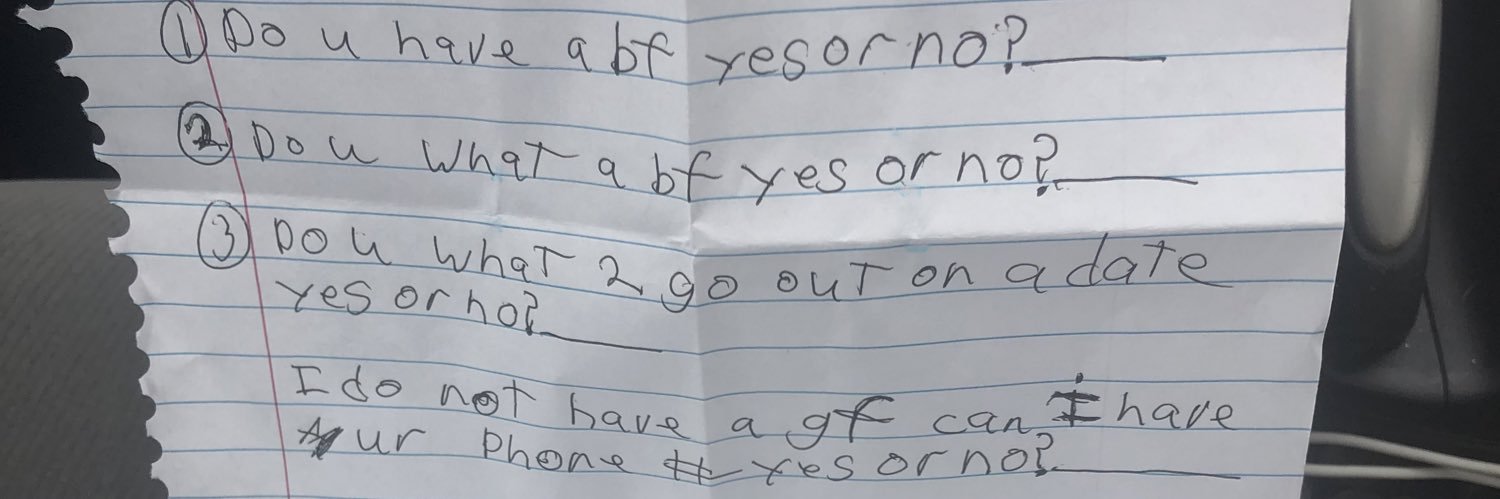 ① Do u have a bf yes or no?______
② Do u what a bf yes or no?______
③ Do u what 2 go out on a date
yes or no?______
I do not have a gf can I have
ur phone # yes or no?______